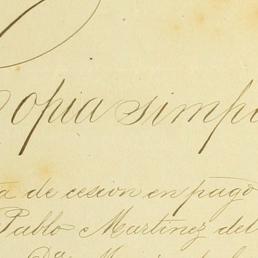 opia simp
ta de cesion en pago
Pablo Martinez del